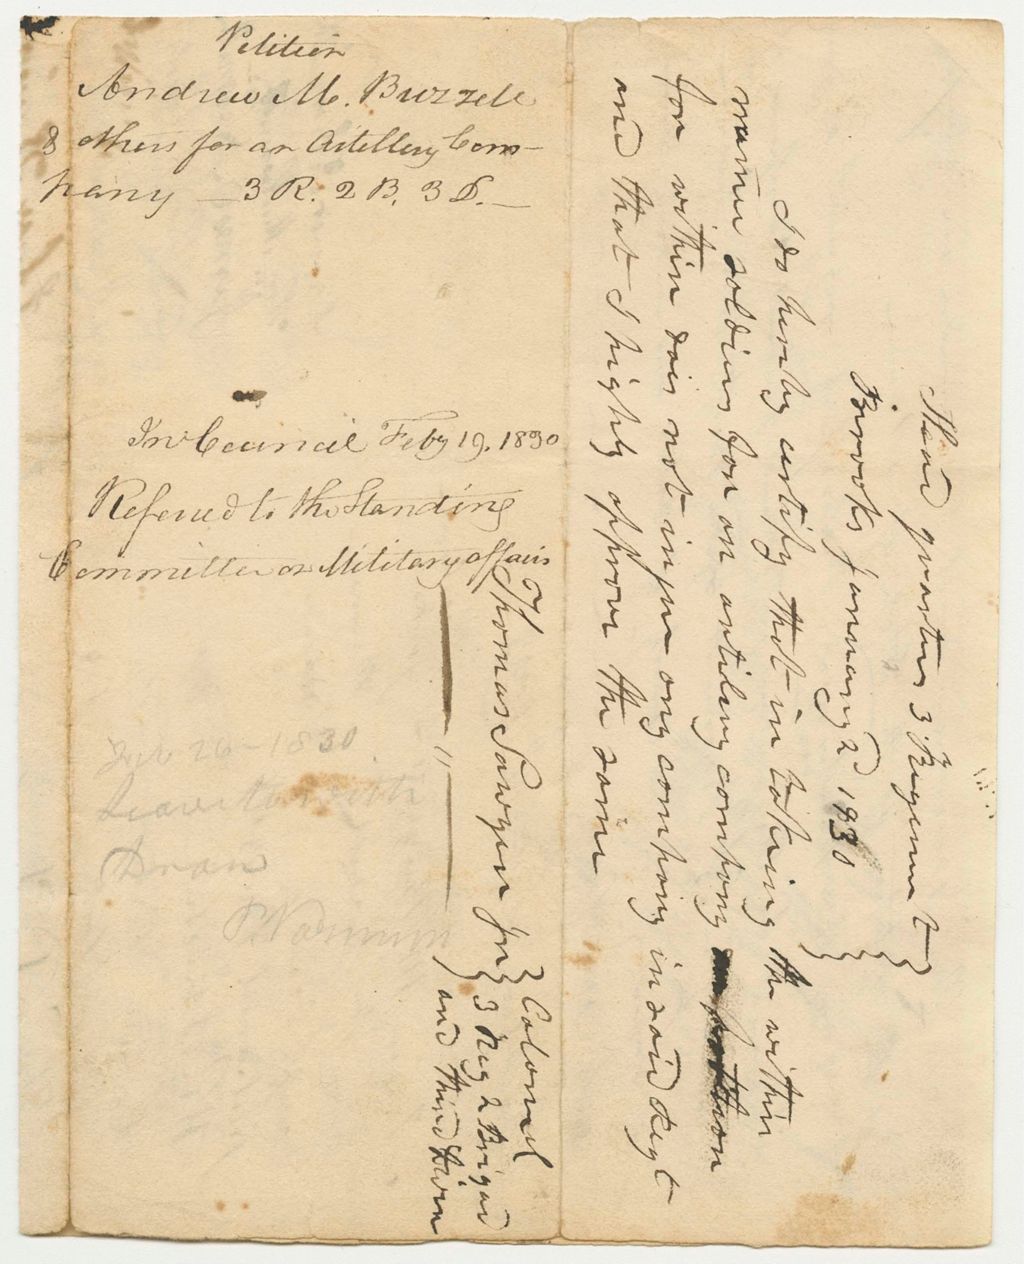 Petition
Andrew M. Buzzell
& others for an Artillery Com-
pany — 3 R. 2 B. 3 D. —
In Council Feby 19. 1830
Referred to the Standing
Committee on Military affairs
Feb 26 - 1830
Leave to with
draw
Head quarters 3 Regiment
Brooks January 2d 1830
I do herby certify that in taking the within
name soldiers for an artilery company
for within dois not injue any company in said Regt
and that I highly approve the same
Thomas Sawyer Jr
Colonel
3 Reg 2 Brigad
and third Divin